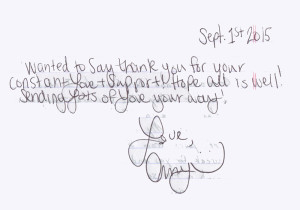 Sept. 1st 2015
Wanted to Say thank you for your
constant love + Support! Hope all is Well!
Sending lots of love your way!
Love,